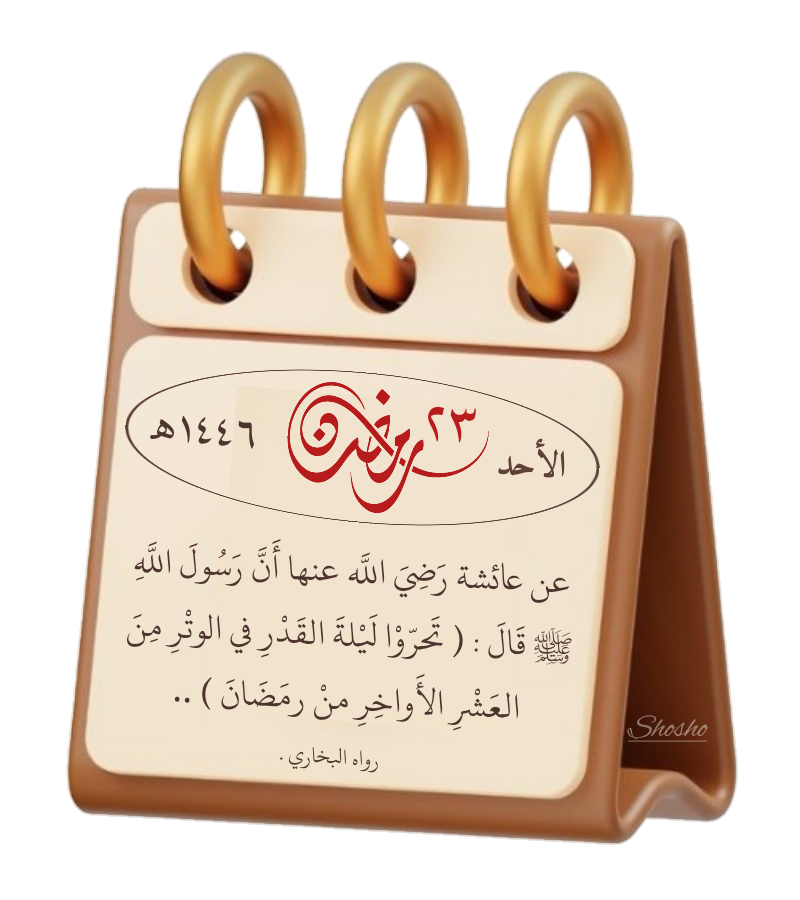 الأحد ٢٣ رمضان ١٤٤٦هـ
عن عائشة رَضِيَ اللَّه عنها أَنَّ رَسُولَ اللَّهِ
ﷺ قَالَ : ( تَحرّوْا لَيْلةَ القَدْرِ في الوتْرِ مِنَ
العَشْرِ الأَواخِرِ منْ رمَضَانَ ) ..
رواه البخاري .
Shosho